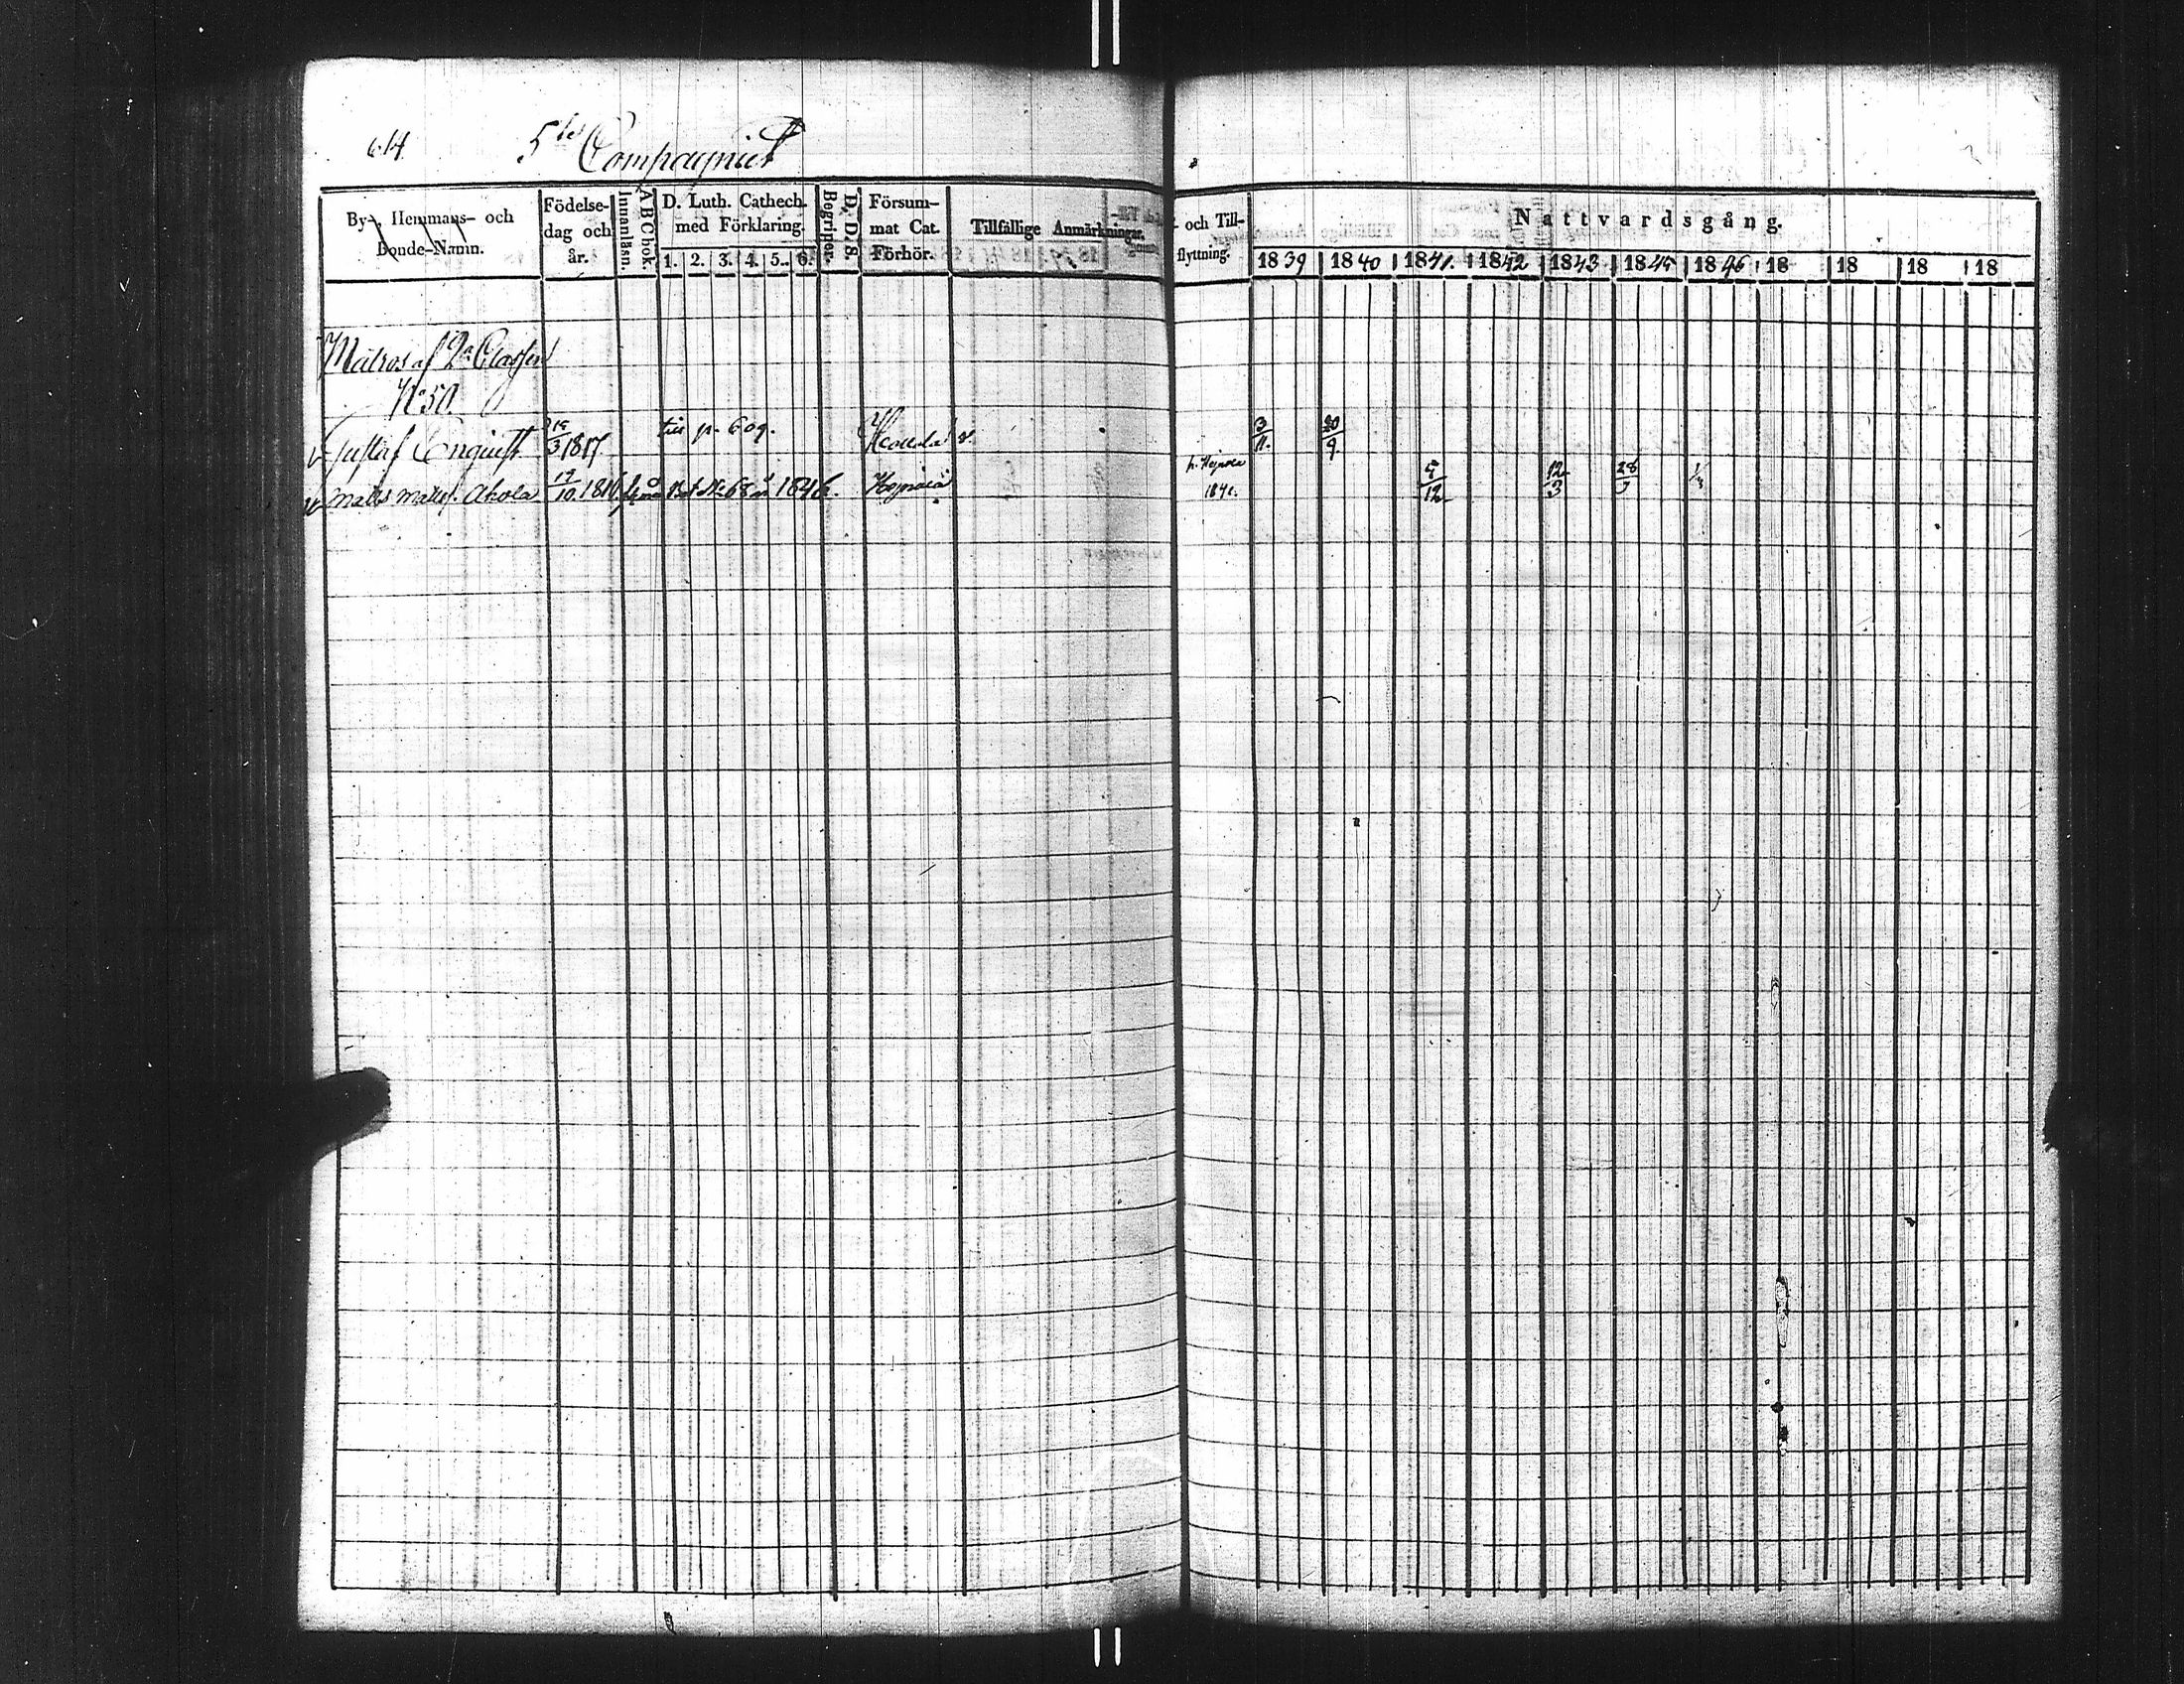 614. 5te Compagniet
By- Hemmans- och Bonde-Namn.
Födelse-dag och år.
Innanläsn.
ABCbok.
D. Luth. Cathech. med Förklaring.
1. 2. 3. 4. 5. 6.
Begriper.
D. D. S.
Försum-mat Cat. Förhör.
Tillfällige Anmärkningar.
och Till-flyttning.
Nattvardsgång.
1839 1840 1841. 1842 1843 1845 1846 18 18 18 18
Matros af 2a Classen
No 50.
Gustaf Enquist 19/3 1817. p. 609. 3/11. 20/9
Matts Matts. Ahola 17/10. 1816. No 68 1846. 1841. 5/12 12/3 28/3